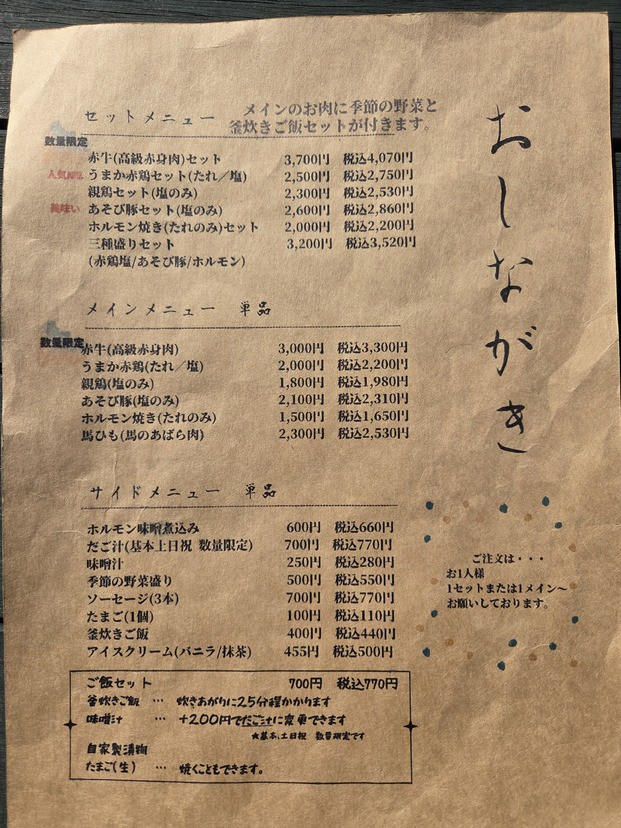 おしながき
セットメニュー
メインのお肉に季節の野菜と
釜炊きご飯セットが付きます。
数量限定
赤牛(高級赤身肉)セット 3,700円 税込4,070円
うまか赤鶏セット(たれ/塩) 2,500円 税込2,750円
親鶏セット(塩のみ) 2,300円 税込2,530円
美味い あそび豚セット(塩のみ) 2,600円 税込2,860円
ホルモン焼き(たれのみ)セット 2,000円 税込2,200円
三種盛りセット 3,200円 税込3,520円
(赤鶏塩/あそび豚/ホルモン)
メインメニュー 単品
数量限定
赤牛(高級赤身肉) 3,000円 税込3,300円
うまか赤鶏(たれ/塩) 2,000円 税込2,200円
親鶏(塩のみ) 1,800円 税込1,980円
あそび豚(塩のみ) 2,100円 税込2,310円
ホルモン焼き(たれのみ) 1,500円 税込1,650円
馬ひも(馬のあばら肉) 2,300円 税込2,530円
サイドメニュー 単品
ホルモン味噌煮込み 600円 税込660円
だご汁(基本土日祝 数量限定) 700円 税込770円
味噌汁 250円 税込280円
季節の野菜盛り 500円 税込550円
ソーセージ(3本) 700円 税込770円
たまご(1個) 100円 税込110円
釜炊きご飯 400円 税込440円
アイスクリーム(バニラ/抹茶) 455円 税込500円
ご注文は・・・
お1人様
1セットまたは1メイン〜
お願いしております。
ご飯セット 700円 税込770円
釜炊きご飯 … 炊きあがりに25分程かかります
味噌汁 … +200円でだご汁に変更できます
★基本、土日祝 数量限定です
自家製漬物
たまご(生) … 焼くこともできます。